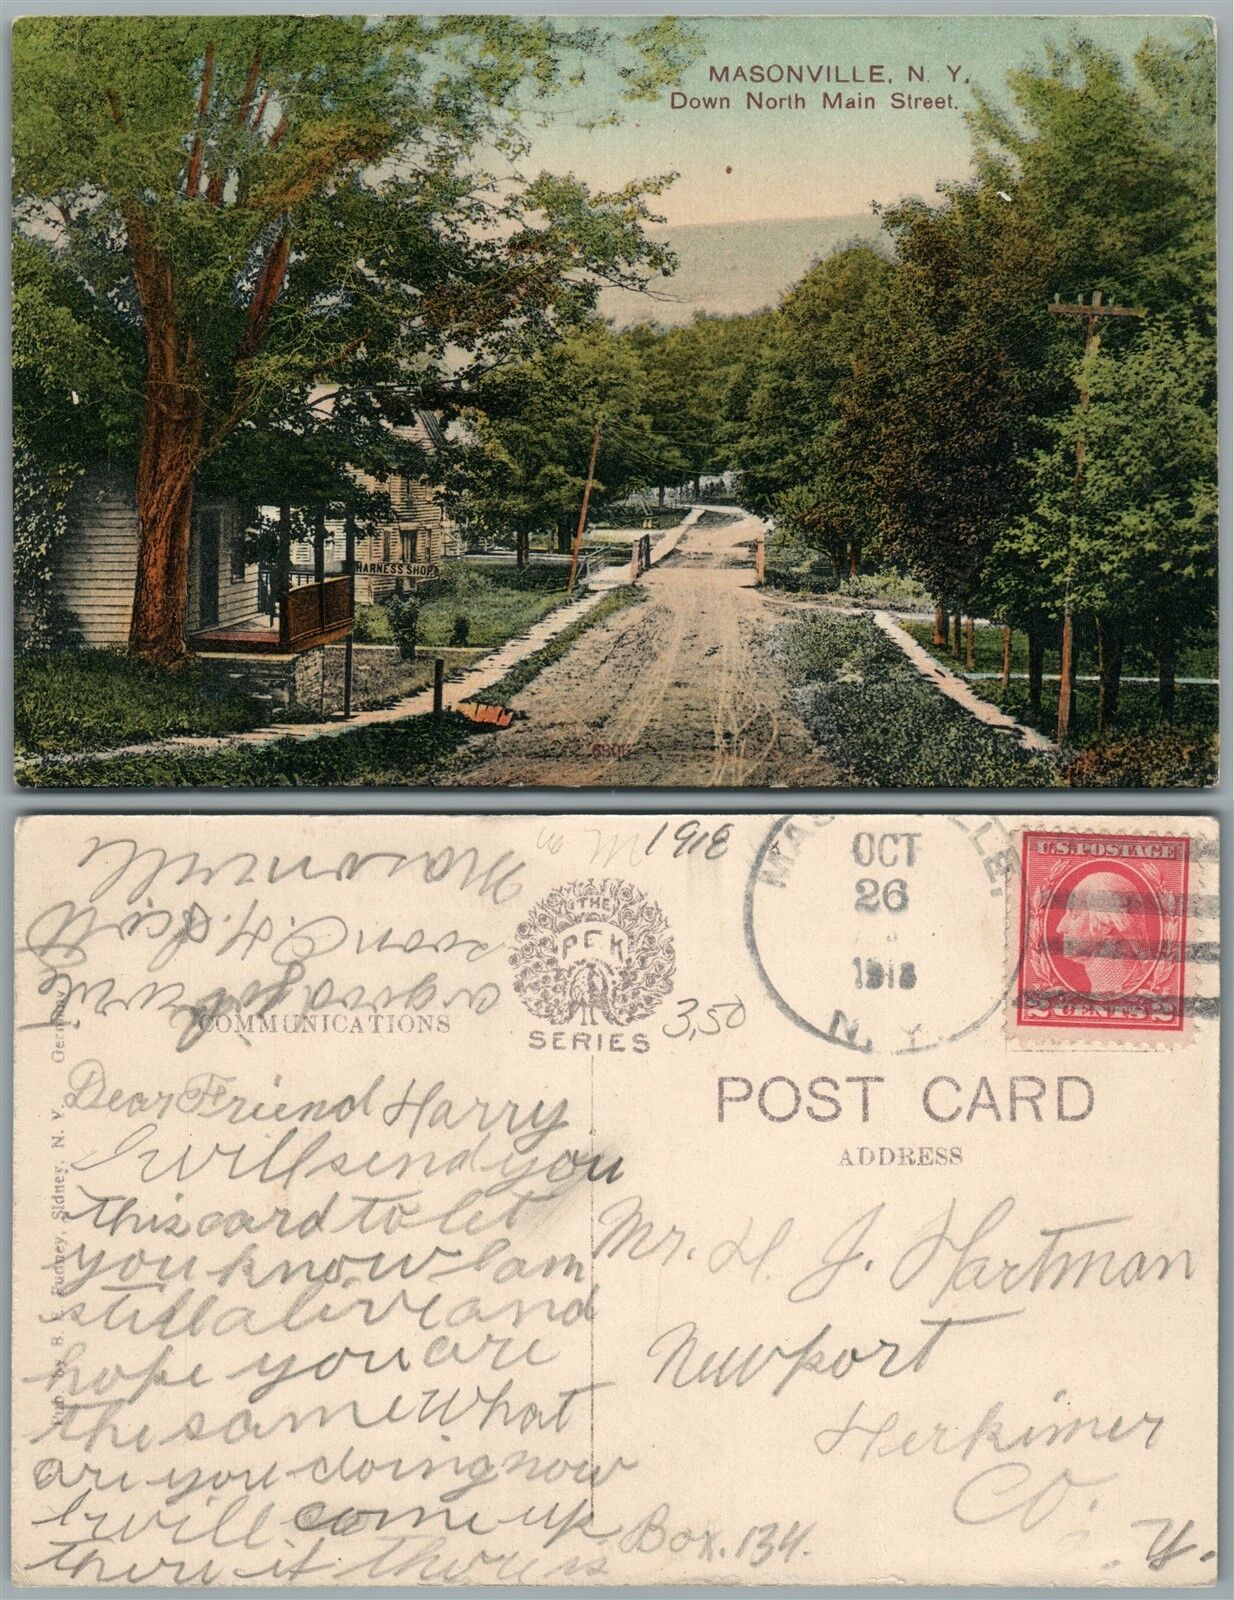 MASONVILLE, N. Y.
Down North Main Street.
HARNESS SHOP
1918
MASONVILLE,
OCT
26
1918
N. Y.
U.S. POSTAGE
2 CENTS 2
THE
PCK
SERIES
3,50
COMMUNICATIONS
POST CARD
ADDRESS
Pub. by B. F. Rudney, Sidney, N. Y. Germany
Dear Friend Harry
I will send you
this card to let
you know I am
still alive and
hope you are
the same What
are you doing now
I will come up
there if there is
a
write
soon C. H. Scott
Masonville
Mr. H. J. Hartman
Newport
Herkimer
Co.
Box. 134.
. Y.